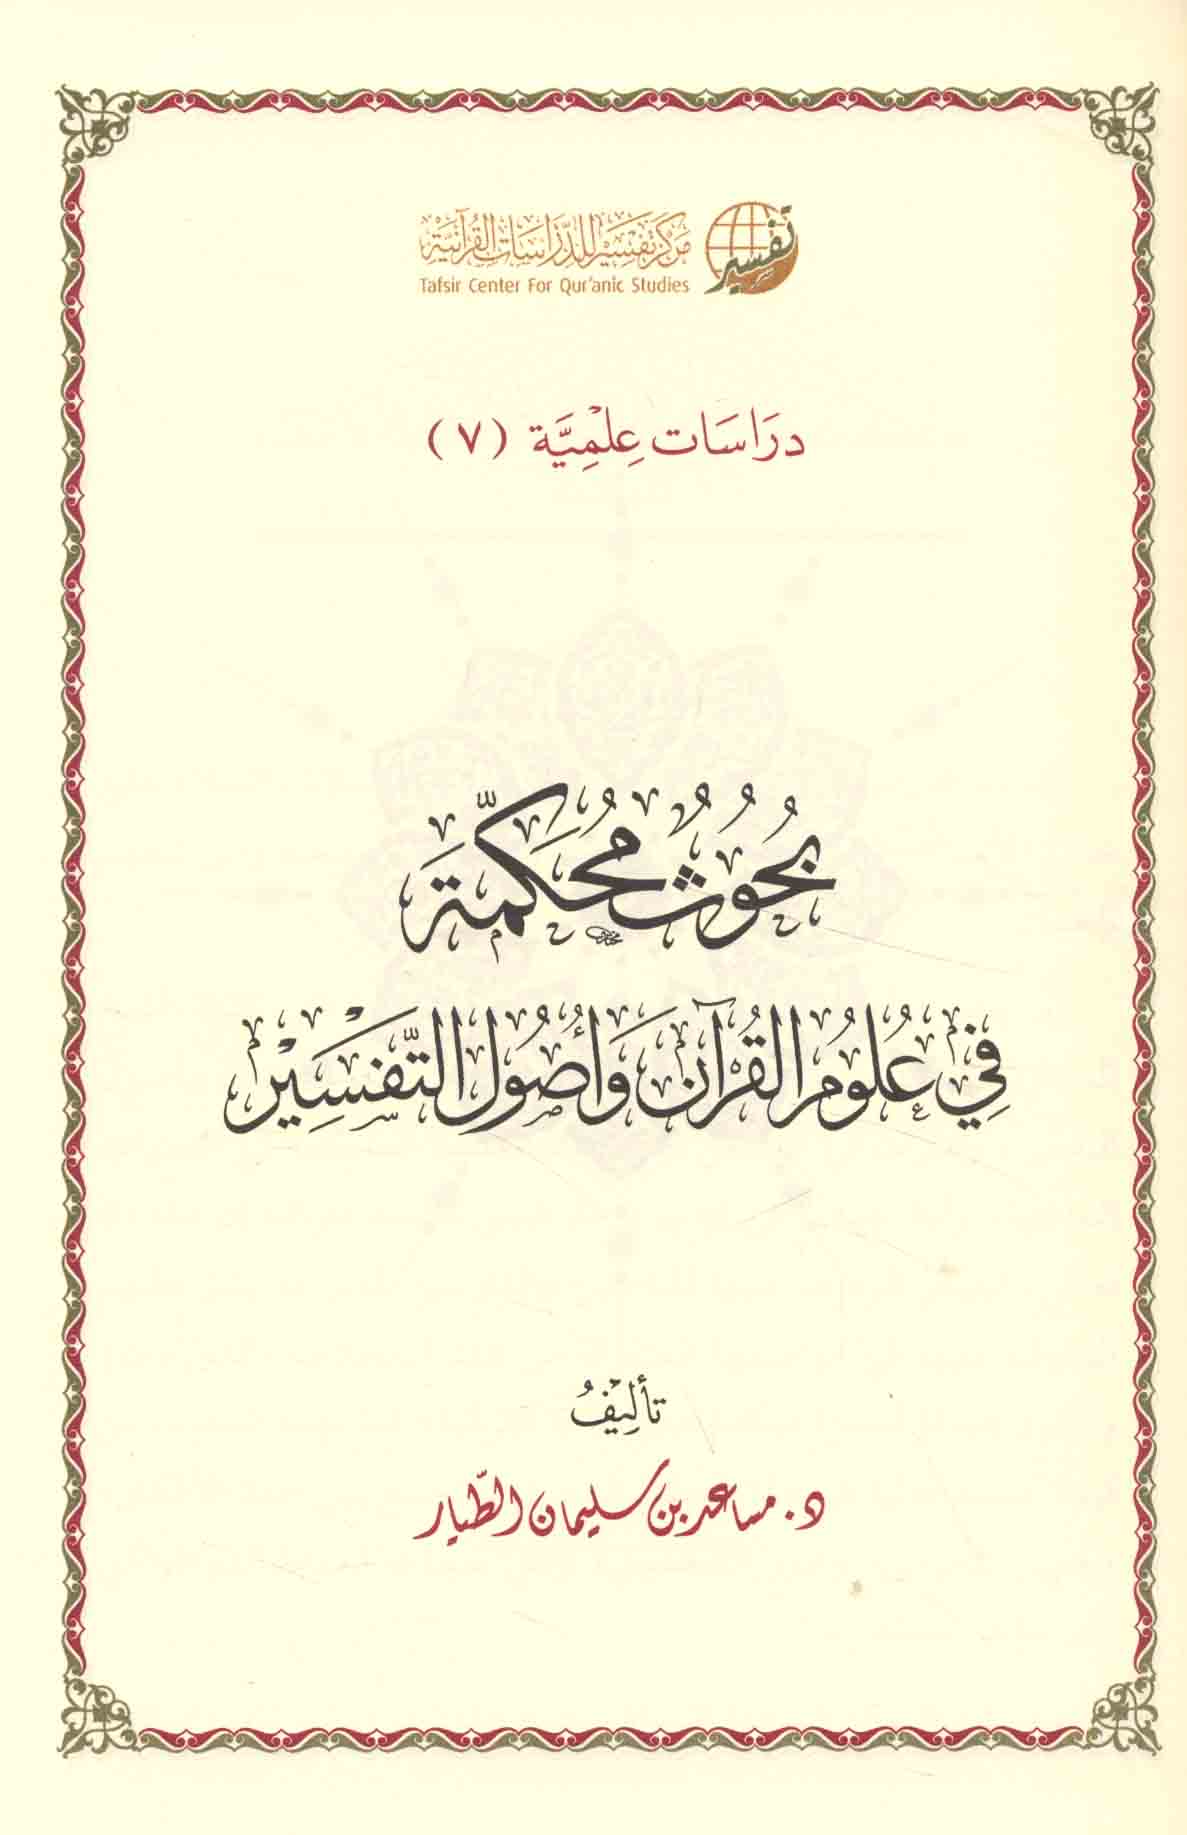 مَركز تفسير للدِّرَاسَات القُرآنيَّة
تفسير
Tafsir Center For Qur'anic Studies
دِرَاسَات عِلْمِيَّة (٧)
بُحُوثٌ مُحَكَّمَة
فِي عُلُومِ القُرآنِ وَأُصُولِ التَّفْسِيْرِ
تأليفُ
د. مساعد بن سليمان الطيَّار